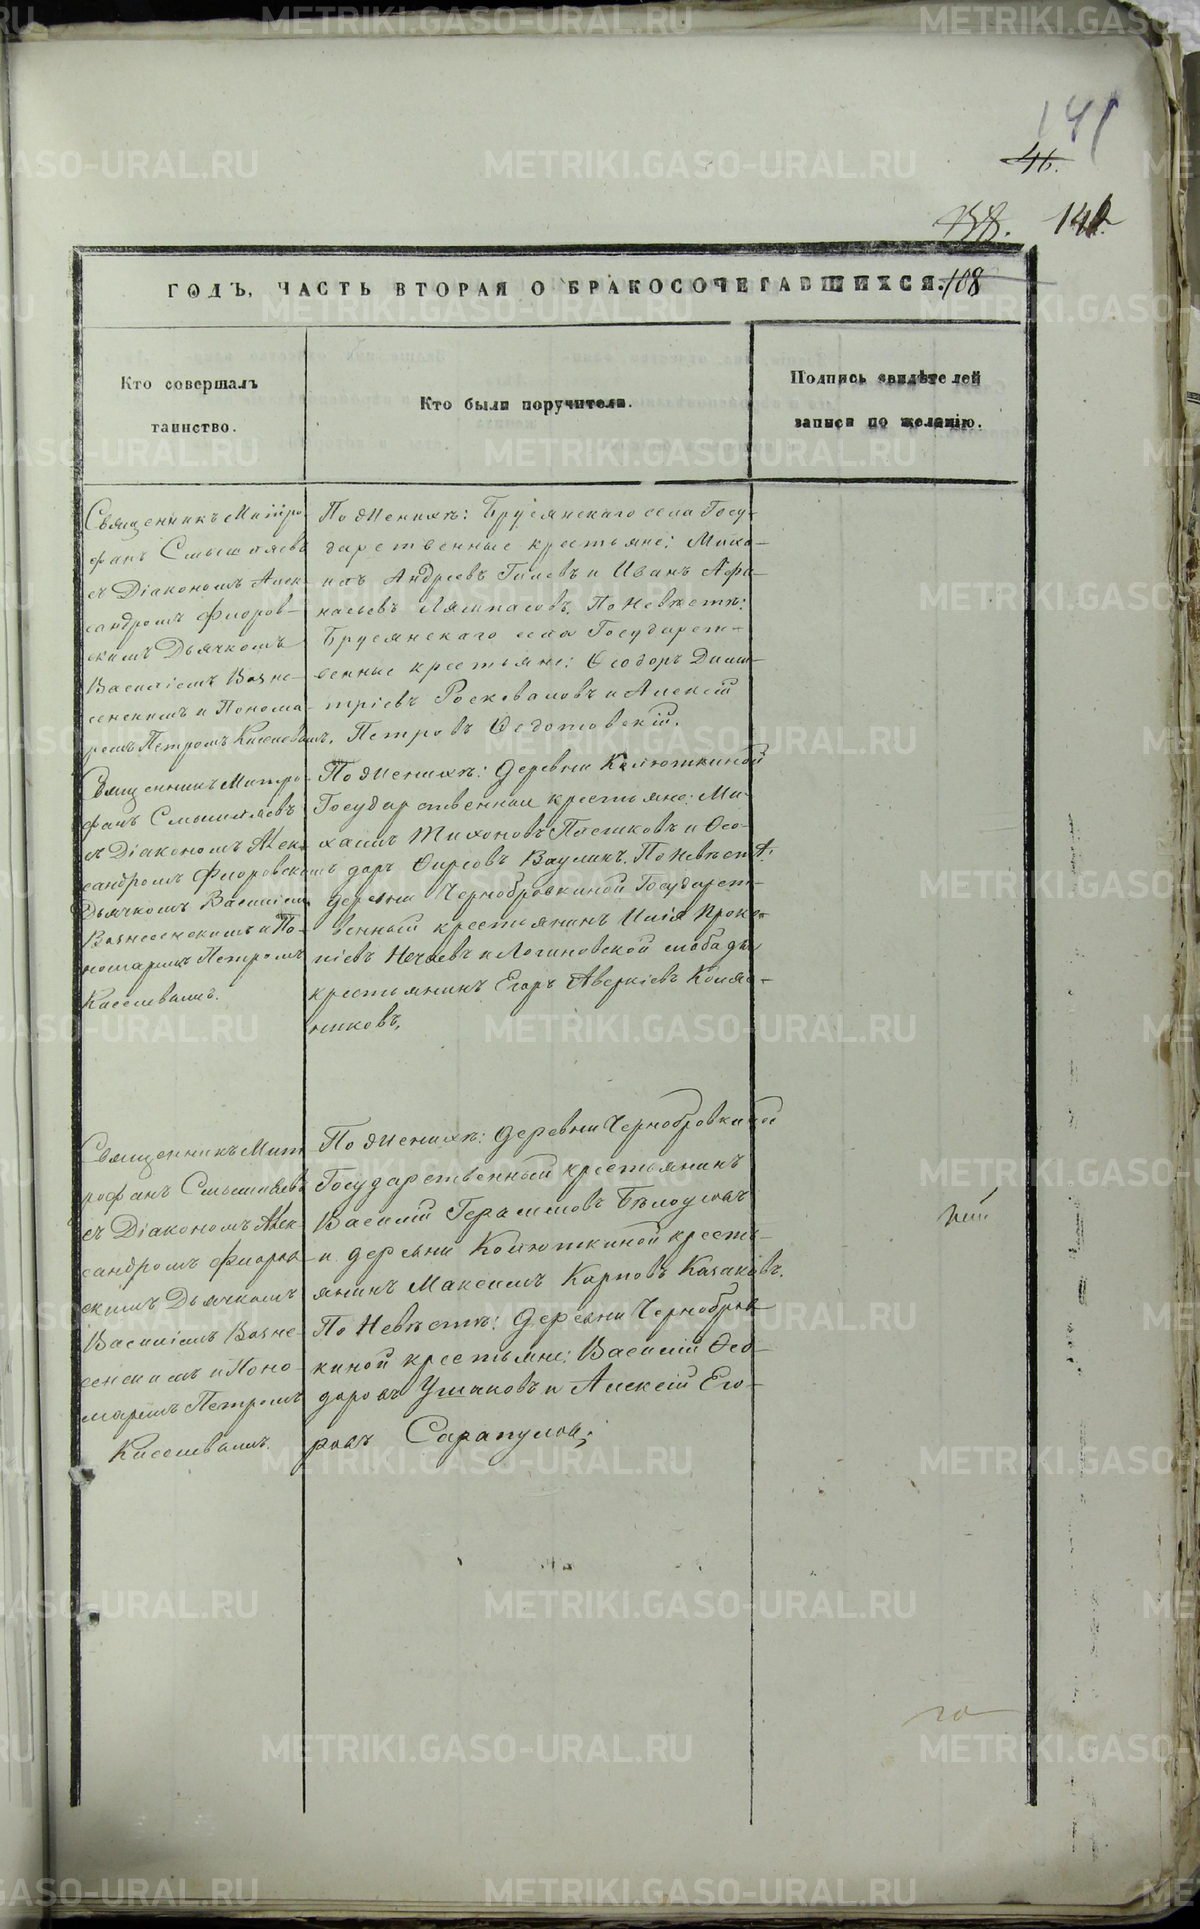 141
46.
138. 140.
ГОДЪ, ЧАСТЬ ВТОРАЯ О БРАКОСОЧЕТАВШИХСЯ. 108
Кто совершалъ
таинство.
Кто были поручители.
Подпись свидѣтелей
записи по желанію.
Священникъ Митро-
фанъ Смышляевъ
съ Діакономъ Алек-
сандромъ Флоров-
скимъ Дьячкомъ
Василіемъ Возне-
сенскимъ и Понома-
ремъ Петромъ Киселевымъ.
По Женихѣ: Брусянскаго села Госу-
дарственные крестьяне: Миха-
илъ Андреевъ Гилевъ и Иванъ Афа-
насьевъ Лямпасовъ. По Невѣстѣ:
Брусянскаго села Государст-
венные крестьяне: Ѳеодоръ Дими-
тріевъ и Алексій
Петровъ Ѳедотовскій.
Священникъ Митро-
фанъ Смышляевъ
съ Діакономъ Алек-
сандромъ Флоровскимъ
Дьячкомъ Василіемъ
Вознесенскимъ и По-
номаремъ Петромъ
Киселевымъ.
По Женихѣ: Деревни Колюткиной
Государственные крестьяне: Ми-
хаилъ Тихоновъ Плешковъ и Ѳео-
доръ Ѳирсовъ Ваулинъ. По Невѣстѣ:
деревни Чернобровкиной Государст-
венный крестьянинъ Илія Проко-
піевъ Нечаевъ и Логиновской слободы
крестьянинъ Егоръ Аверкіевъ Коляс-
никовъ.
Священникъ Мит-
рофанъ Смышляевъ
съ Діакономъ Алек-
сандромъ Флоров-
скимъ Дьячкомъ
Василіемъ Возне-
сенскимъ и Поно-
маремъ Петромъ
Киселевымъ.
По Женихѣ: Деревни Чернобровкиной
Государственный крестьянинъ
Василій Герасимовъ Бѣлоусовъ
и деревни Колюткиной кресть-
янинъ Максимъ Карповъ Казаковъ.
По Невѣстѣ: Деревни Чернобров-
киной крестьяне: Василій Ѳео-
доровъ Ушаковъ и Алексій Его-
ровъ Сарапулов;